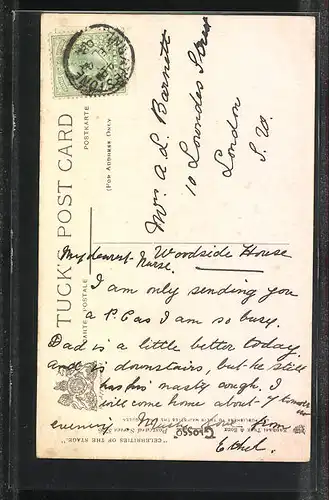 TUCK'S POST CARD
CARTE POSTALE
POSTKARTE
(FOR ADDRESS ONLY)
Mrs A. L. Barnett
10 Lowndes Street
London
S. W.
Woodside House
My dearest Nurse,
I am only sending you
a P.C as I am so busy.
Dad is a little better today.
and is downstairs, but he still
has his nasty cough. I
will come home about 7 tomorrow
evening. Much love from
Ethel.
RAPHAEL TUCK & SONS
"GLOSSO"
"CELEBRITIES OF THE STAGE."